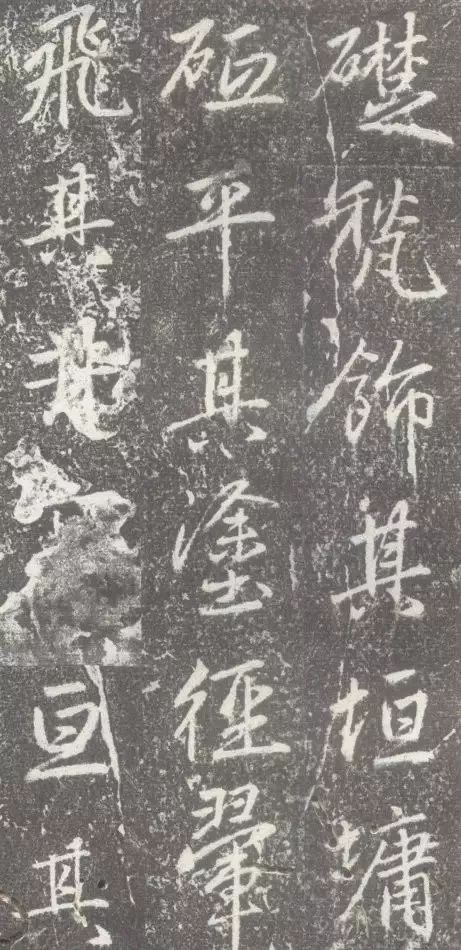 礎甃飾其垣墉
砥平其塗徑翬
飛其亘其